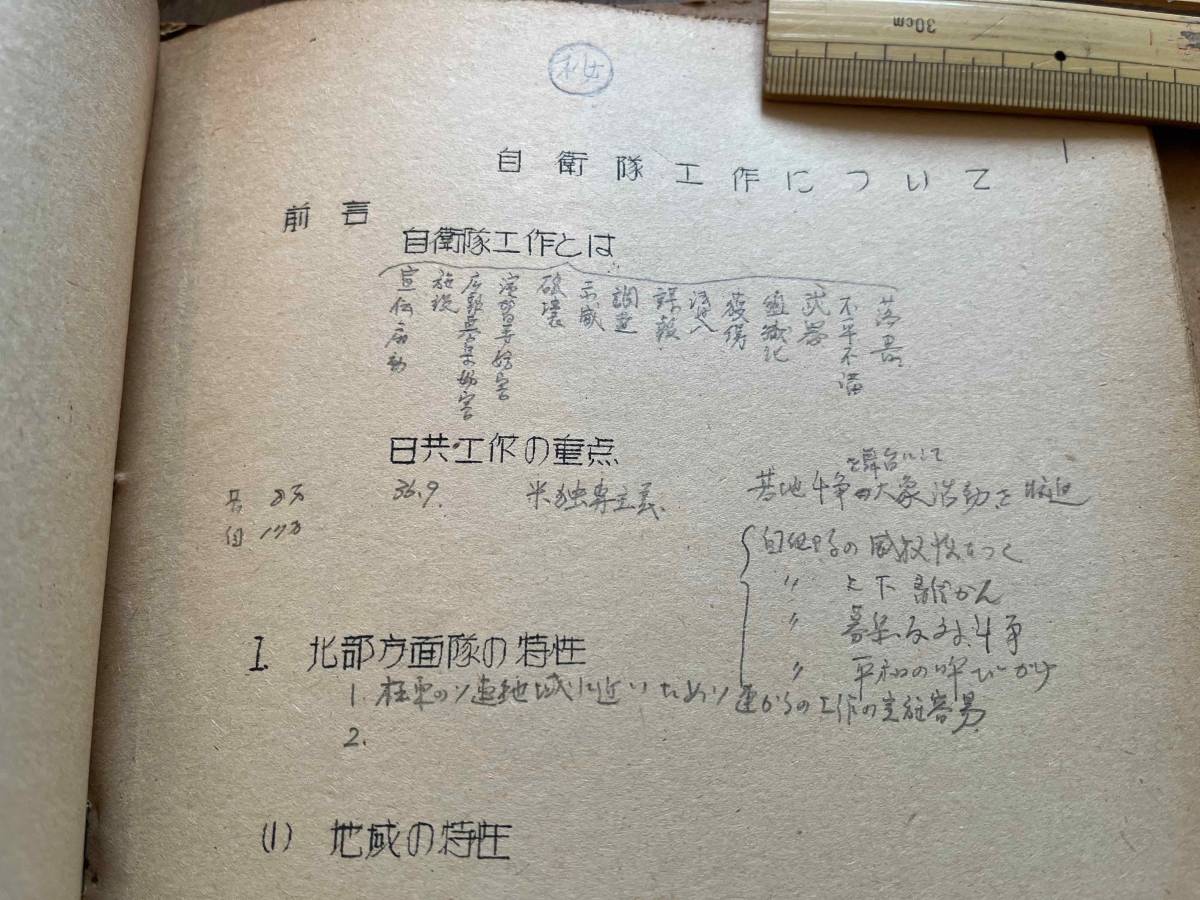 秘
30cm
1
自衛隊工作について
前言
自衛隊工作とは
宣伝扇動
施設
広報募集妨害
演習等妨害
破壊
示威
調査
諜報
潜入
獲得
組織化
武器
不平不満
落書
日共工作の重点
を舞台にして
共 8万 36.9. 米独専主義 基地斗争の大衆活動を
自 17万
自他隊の威
〃 上下離かん
〃 募集反対斗争
〃 平和の呼びかけ
I. 北部方面隊の特性
1. 極東のソ連地域に近いためソ連からの工作の実施容易
2.
(1) 地域の特性